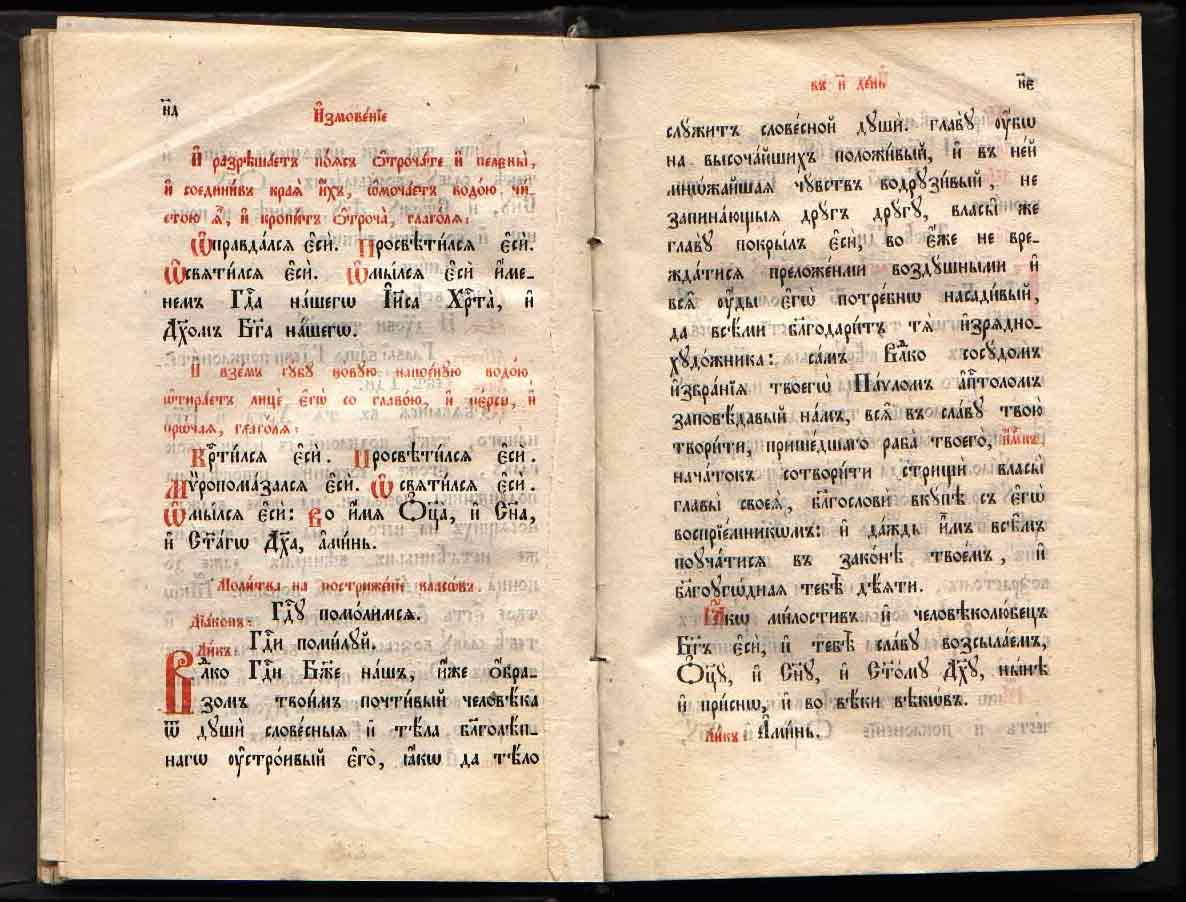 н҃д
И҆змове́нїе
И҆ разрѣша́етъ по́ѧсъ ѻ҆троча́те и҆ пелены̀,
и҆ соедини́въ краѧ̑ и҆́хъ, ѡ҆мочае́тъ водо́ю чи́-
стою ѧ҆̀, и҆ кропи́тъ ѻ҆троча̀, глаго́лѧ:
Ѡ҆правда́лсѧ є҆сѝ. Просвѣти́лсѧ є҆сѝ.
Ѡ҆свѧти́лсѧ є҆сѝ. Ѡ҆мы́лсѧ є҆сѝ и҆́ме-
немъ Гдⷭ҇а на́шегѡ І҆и҃са Хрⷭ҇та̀, и҆
Дх҃омъ Бг҃а на́шегѡ.
И҆ взе́мъ гу́бу но́вую напое́ную водо́ю
ѡ҆тира́етъ лицѐ є҆гѡ̀ со главо́ю, и҆ пе́рси, и҆
прѡ́чаѧ, глаго́лѧ:
Крⷭ҇ти́лсѧ є҆сѝ. Просвѣти́лсѧ є҆сѝ.
Мѵ́ропома́залсѧ є҆сѝ. Ѡ҆свѧти́лсѧ є҆сѝ.
Ѡ҆мы́лсѧ є҆сѝ: Во и҆́мѧ Ѻ҆ц҃а̀, и҆ Сн҃а,
и҆ Ст҃а́гѡ Дх҃а, а҆ми́нь.
Моли́тва на постриже́нїе власѡ́въ.
Дїа́конъ: Гдⷭ҇у помо́лимсѧ.
Ли́къ: Гдⷭ҇и поми́луй.
Влⷣко Гдⷭ҇и Бж҃е на́шъ, и҆́же ѻ҆́бра-
зомъ твои́мъ почти́вый человѣ́ка
ѿ душѝ слове́сныѧ и҆ тѣ́ла бл҃голѣ́п-
нагѡ ᲂу҆стро́ивый є҆го̀, ꙗ҆́кѡ да тѣ́ло
въ и҃ де́нь
н҃є
слу́житъ слове́сной душѝ. главу̀ ᲂу҆́бѡ
на высоча́йшихъ положи́вый, и҆ въ не́й
мнѡжа́йшаѧ чу́вствъ водрузи́вый, не
запина́ющыѧ дру́гъ дру́гу, власы́ же
главу̀ покры́лъ є҆сѝ, во є҆́же не вре-
жда́тисѧ преложе́нми возду́шными и҆
всѧ̑ ᲂу҆́ды є҆гѡ̀ потре́бнѡ насади́вый,
да всѣ́ми бл҃годари́тъ тѧ̀ и҆зрѧ́дно-
худо́жника: са́мъ Влⷣко сосу́домъ
и҆збра́нїѧ твоегѡ̀ Па́уломъ а҆пⷭ҇толомъ
заповѣ́давый на́мъ, всѧ̑ въ сла́ву твою̀
твори́ти, прише́дшаго раба̀ твоего̀, и҆мⷬ҇къ
нача́токъ сотвори́ти стрищѝ власы̀
главы̀ своеѧ̀, бл҃гослови вку́пѣ съ є҆гѡ̀
воспрїе́мникѡмъ: и҆ да́жды и҆̀мъ всѣ̑мъ
поуча́тисѧ въ зако́нѣ твое́мъ, и҆
бл҃гоуго́днаѧ тебѣ̀ дѣ́ѧти.
Ꙗ҆́кѡ ми́лостивъ и҆ человѣколю́бецъ
Бг҃ъ є҆сѝ, и҆ тебѣ̀ сла́ву возсыла́емъ,
Ѻ҆ц҃у̀, и҆ Сн҃у, и҆ Ст҃о́му Дх҃у, ны́нѣ
и҆ при́снѡ, и҆ во вѣ́ки вѣкѡ́въ.
Ли́къ: А҆ми́нь.